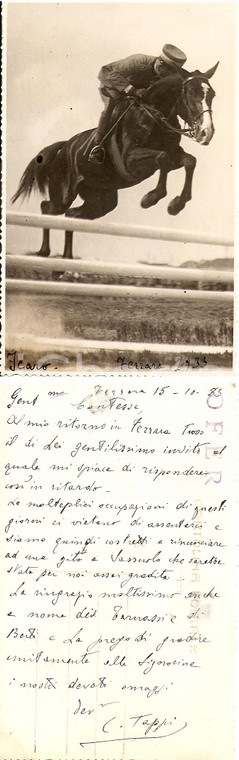 Icaro - Ferrara 1933
Ferrara 15-10-33
Gent.ma Contessa,
Al mio ritorno in Ferrara trovo
il di Lei gentilissimo invito al
quale mi spiace di rispondere
così in ritardo.
Le molteplici occupazioni di questi
giorni ci vietano di assentarci e
siamo quindi costretti a rinunciare
ad una gita a Sassuolo che sarebbe
stata per noi assai gradita.
La ringrazio moltissimo anche
a nome dei e di
Berti e La prego di gradire
unitamente alle Signorine
i nostri devoti omaggi
Dev.
C. Tappi